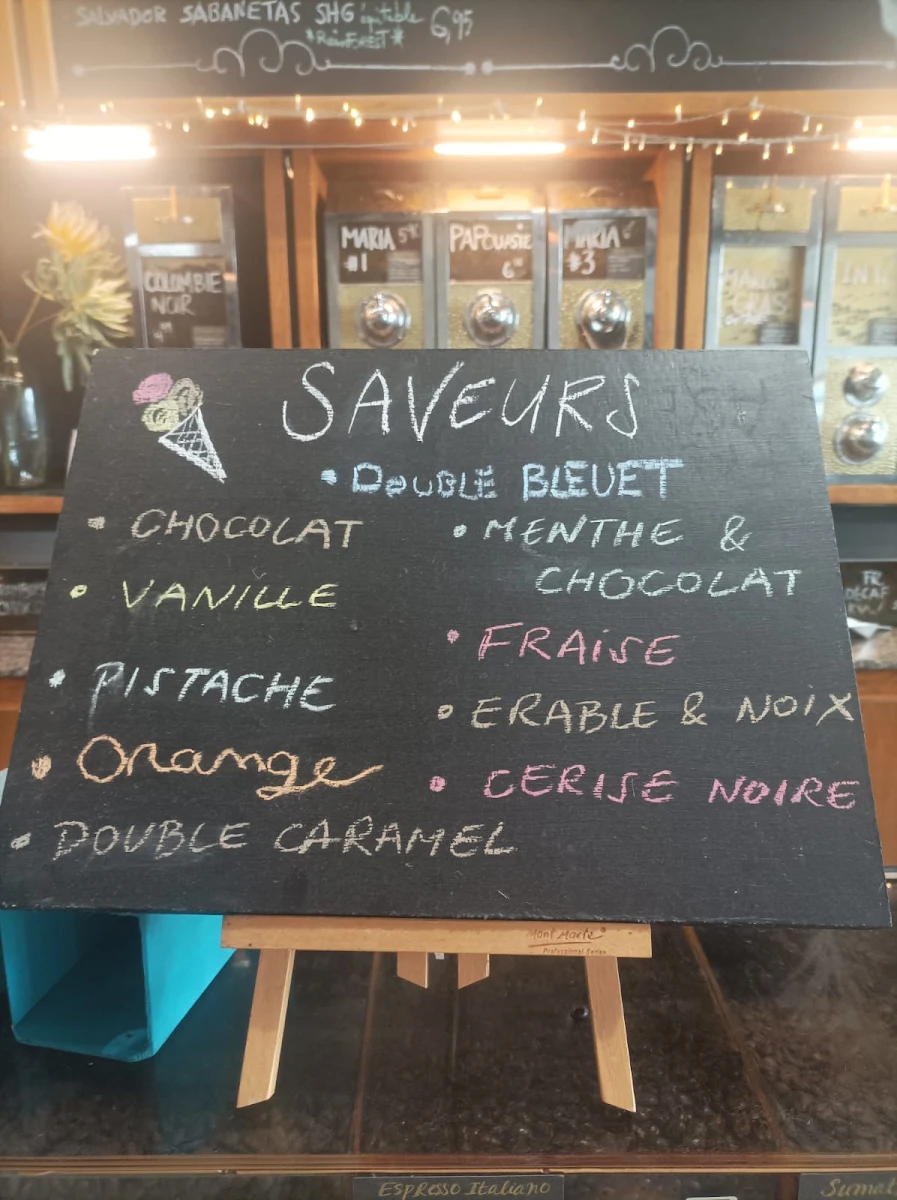 SALVADOR SABANETAS SHG équitable 6,95
*RainFOREST*
MARIA
#1
PAPOUASIE
6
MARIA 6
#3
COLOMBIE
NOIR
SAVEURS
• DOUBLE BLEUET
• CHOCOLAT
• MENTHE &
CHOCOLAT
• VANILLE
• FRAISE
• PISTACHE
• ERABLE & NOIX
• Orange
• CERISE NOIRE
• DOUBLE CARAMEL
FR
DECAF
Mont Marte
Professional Series
Espresso Italiano